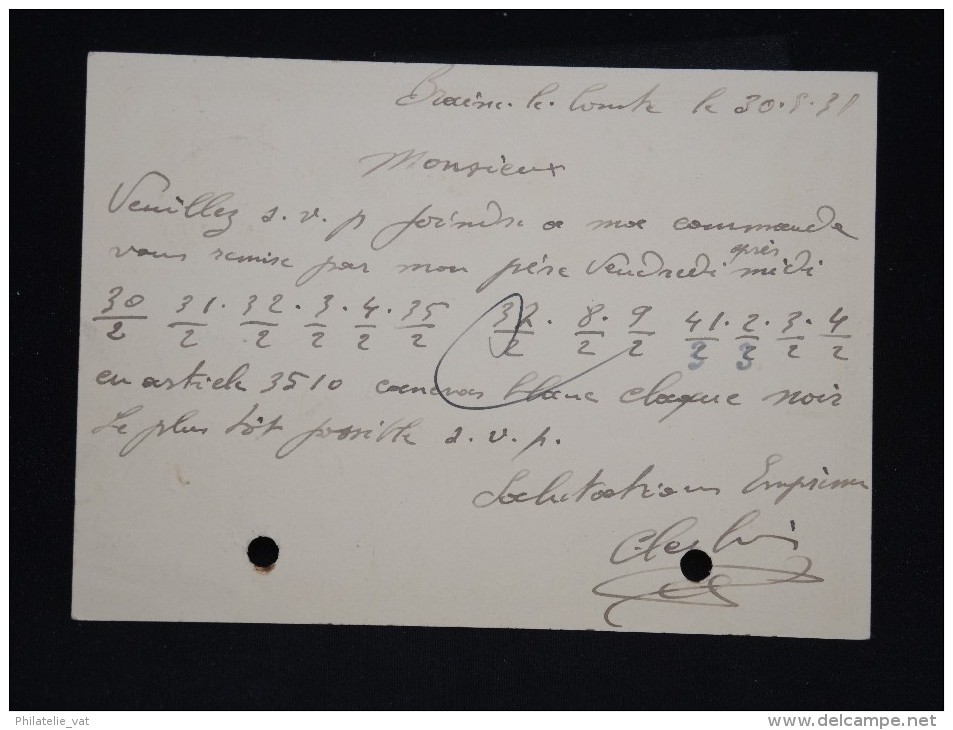 Braine-le-Comte le 30.5.31
Monsieur
Veuillez s.v.p joindre a ma commande
vous remise par mon père Vendredi après midi
30/2 31/2 . 32/2 . 3/2 . 4/2 . 35/2 32/2 . 8/2 . 9/2 41/2 . 2/2 . 3/2 . 4/2
3 3
en article 3510 canevas blanc claque noir
Le plus tôt possible s.v.p.
Salutations
Philatelie_vat
www.delcampe.net